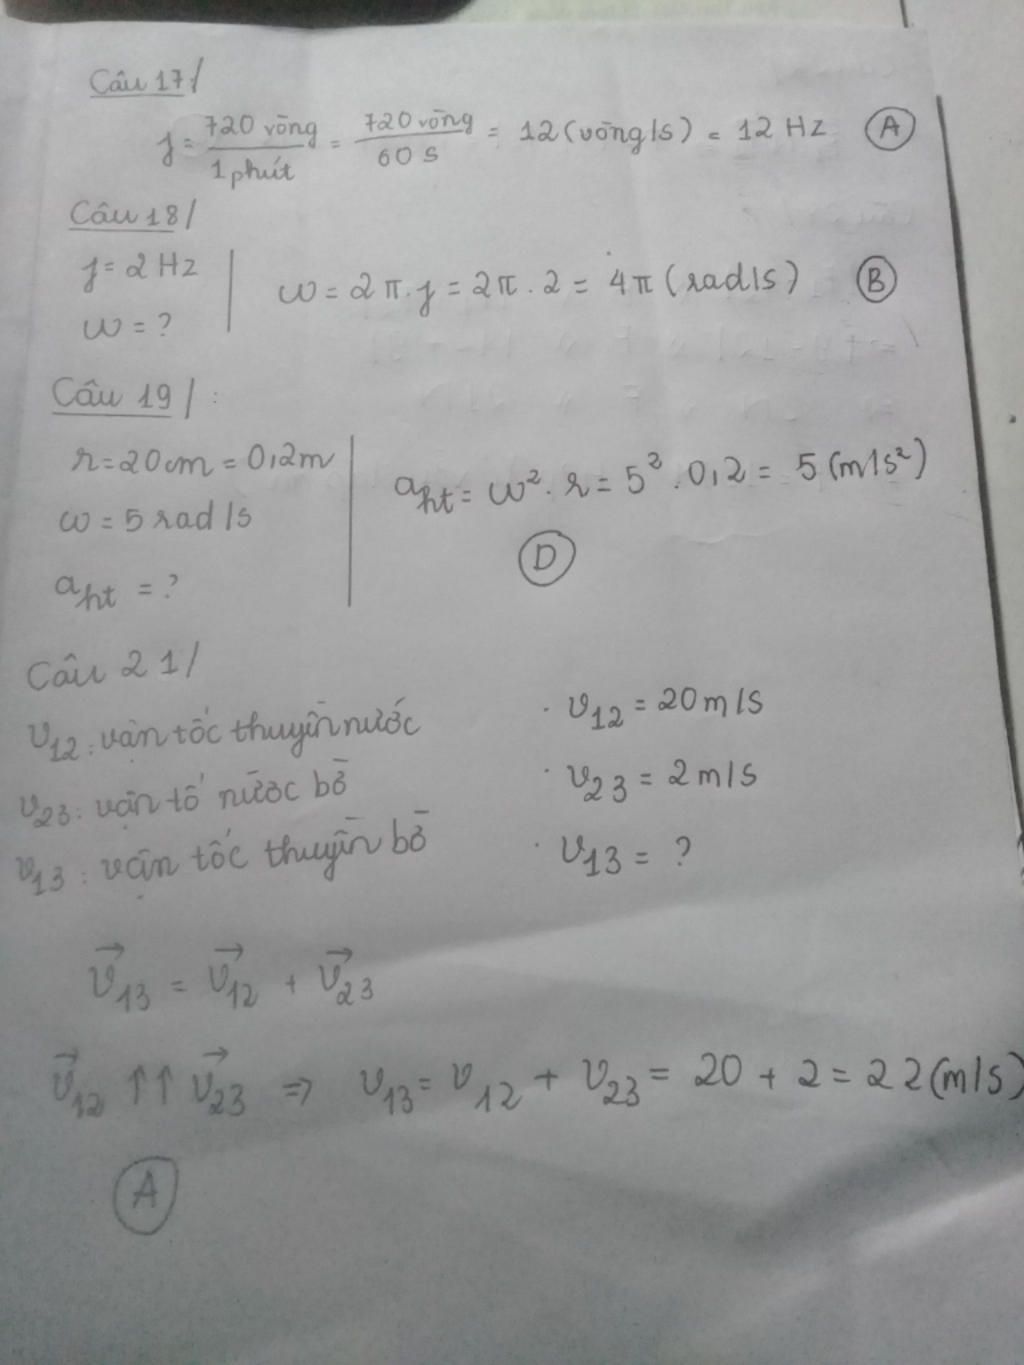 Câu 17/
f = 720 vòng / 1 phút = 720 vòng / 60 s = 12 (vòng/s) = 12 Hz (A)
Câu 18/
f = 2 Hz
ω = ?
ω = 2π.f = 2π.2 = 4π (rad/s) (B)
Câu 19/:
r = 20cm = 0,2m
ω = 5 rad/s
aht = ?
aht = ω².r = 5².0,2 = 5 (m/s²)
(D)
Câu 21/
v12: vận tốc thuyền nước
v23: vận tố nước bờ
v13: vận tốc thuyền bờ
· v12 = 20 m/s
· v23 = 2 m/s
· v13 = ?
v⃗13 = v⃗12 + v⃗23
v⃗12 ↑↑ v⃗23 ⇒ v13 = v12 + v23 = 20 + 2 = 22 (m/s)
(A)